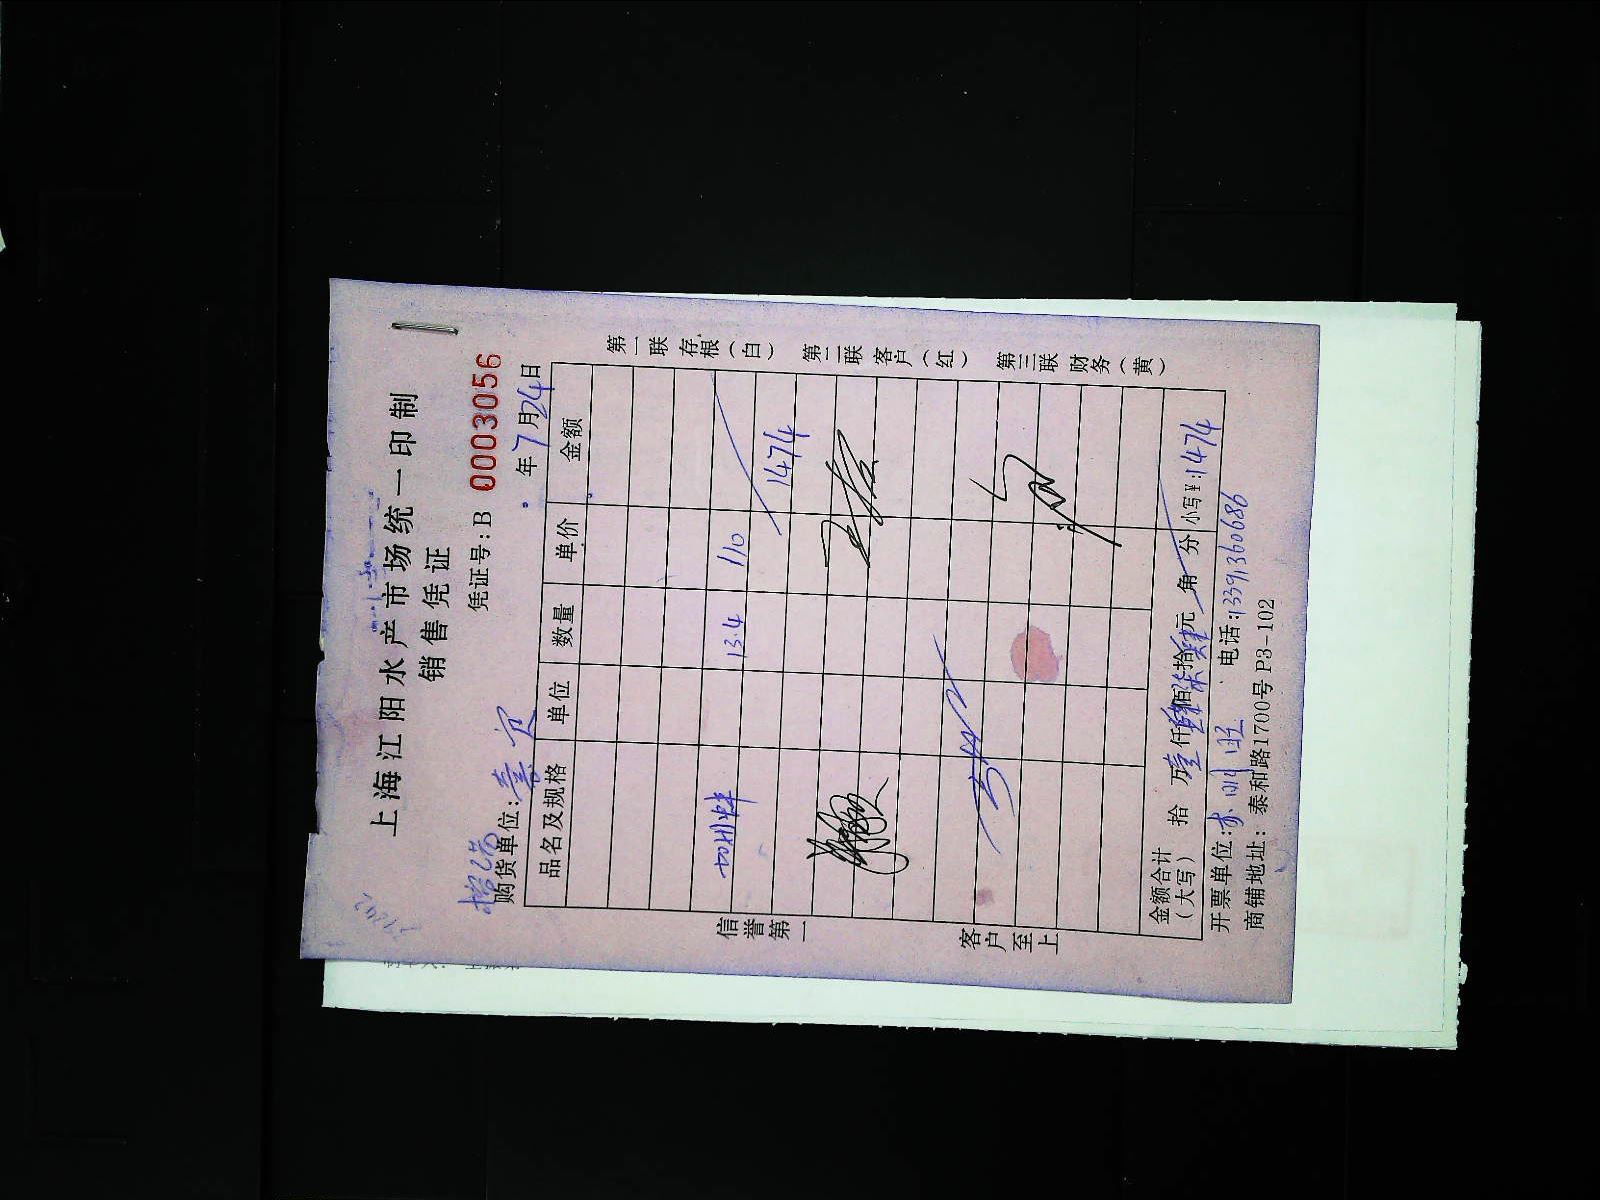 上海江阳水产市场统一印制
销售凭证
凭证号:B 0003056
购货单位:
年7月24日
品名及规格 单位 数量 单价 金额
13.4 110
1474
信誉第一
客户至上
第一联 存根(白) 第二联 客户(红) 第三联 财务(黄)
金额合计(大写) 拾 万壹仟肆佰柒拾肆元 角 分 小写¥:1474
开票单位: 电话:13391360686
商铺地址: 泰和路1700号 P3-102